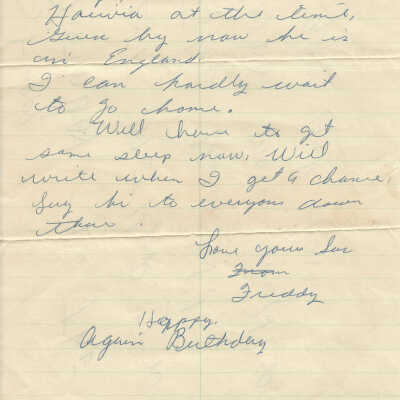 at the time,
Guess by now he is
in England.
I can hardly wait
to go home.
Will have to get
some sleep now. Will
write when I get a chance.
Say hi to everyone down
there.
Love your Son
From
Freddy
Happy
Again Birthday